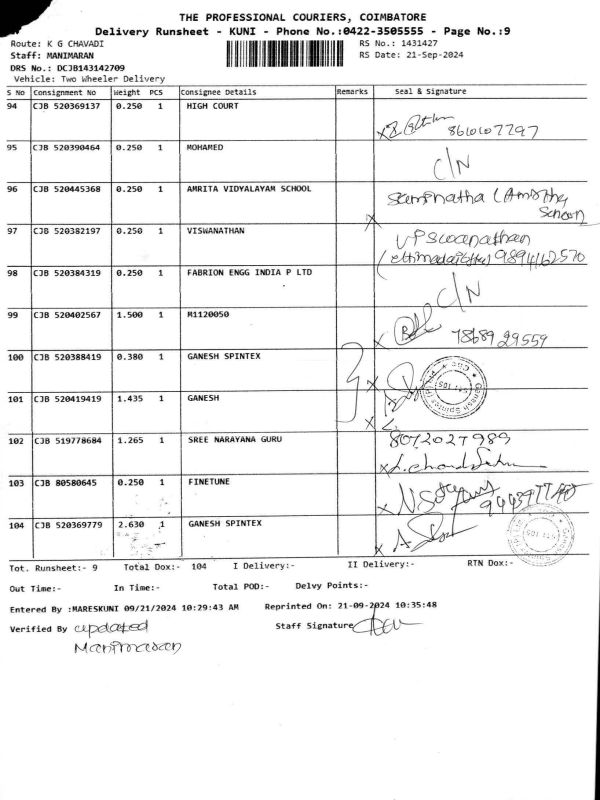 THE PROFESSIONAL COURIERS, COIMBATORE
Delivery Runsheet - KUNI - Phone No.:0422-3505555 - Page No.:9
Route: K G CHAVADI RS No.: 1431427
Staff: MANIMARAN RS Date: 21-Sep-2024
DRS No.: DCJB143142709
Vehicle: Two Wheeler Delivery
S No Consignment No Weight PCS Consignee Details Remarks Seal & Signature
94 CJB 520369137 0.250 1 HIGH COURT
x 8610107797
95 CJB 520390464 0.250 1 MOHAMED
C/N
96 CJB 520445368 0.250 1 AMRITA VIDYALAYAM SCHOOL
School)
x
97 CJB 520382197 0.250 1 VISWANATHAN
9894162570
98 CJB 520384319 0.250 1 FABRION ENGG INDIA P LTD
C/N
99 CJB 520402567 1.500 1 M1120050
x 78689 29559
100 CJB 520388419 0.380 1 GANESH SPINTEX
x
Ganesh Spintex
101 CJB 520419419 1.435 1 GANESH
x
102 CJB 519778684 1.265 1 SREE NARAYANA GURU
8072027989
x
103 CJB 80580645 0.250 1 FINETUNE
x
104 CJB 520369779 2.630 1 GANESH SPINTEX
x
Tot. Runsheet:- 9 Total Dox:- 104 I Delivery:- II Delivery:- RTN Dox:-
Out Time:- In Time:- Total POD:- Delvy Points:-
Entered By :MARESKUNI 09/21/2024 10:29:43 AM Reprinted On: 21-09-2024 10:35:48
Verified By updated Staff Signature
Manimaran